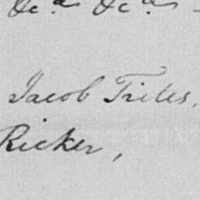 Do. Do.
Jacob Triles,
Ricker,